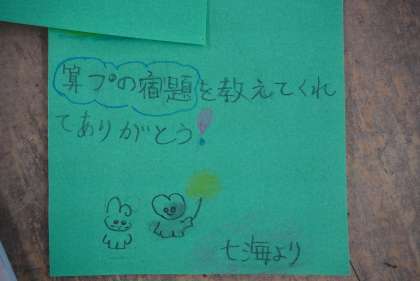 算プの宿題を教えてくれ
てありがとう!
七海より